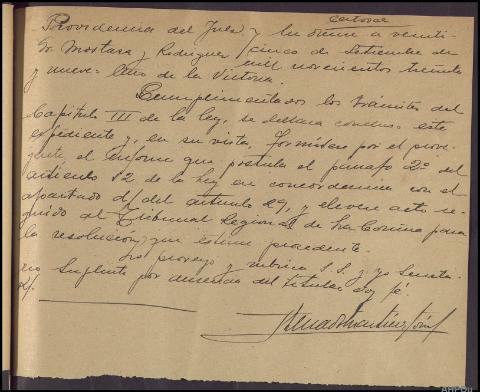 Providencia del Juez
Sr. Mostaza y Rodríguez
catorce
y nueve. Año de la Victoria.
La Orense a veinti-
cinco de Setiembre de
mil novecientos treinta
Cumplimentados los trámites del
Capítulo III de la ley, se declara concluso este
expediente y, en su vista, fórmulese por el pro-
veyente, el informe que postula el párrafo 2º del
artículo 52 de la ley en concordancia con el
apartado d) del artículo 29, y elévese acto se-
guido al Tribunal Regional de La Coruña para
la resolución que estime procedente.
Lo proveyó y rubrica S.S. y yo Secreta-
rio Suplente por ausencia del titular doy fé.